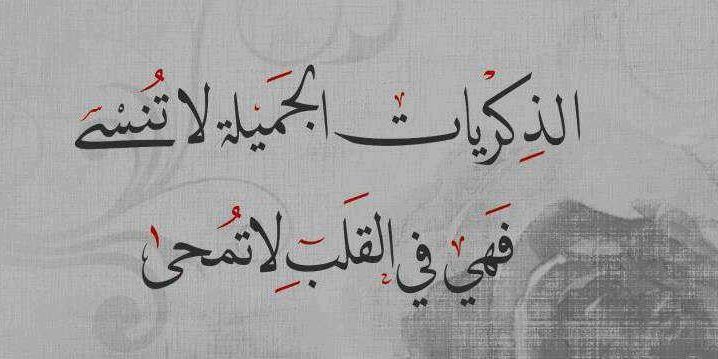 الذِكْرِيات الجَميلة لا تُنسْىَ
فَهي في القَلبِ لا تُمحى